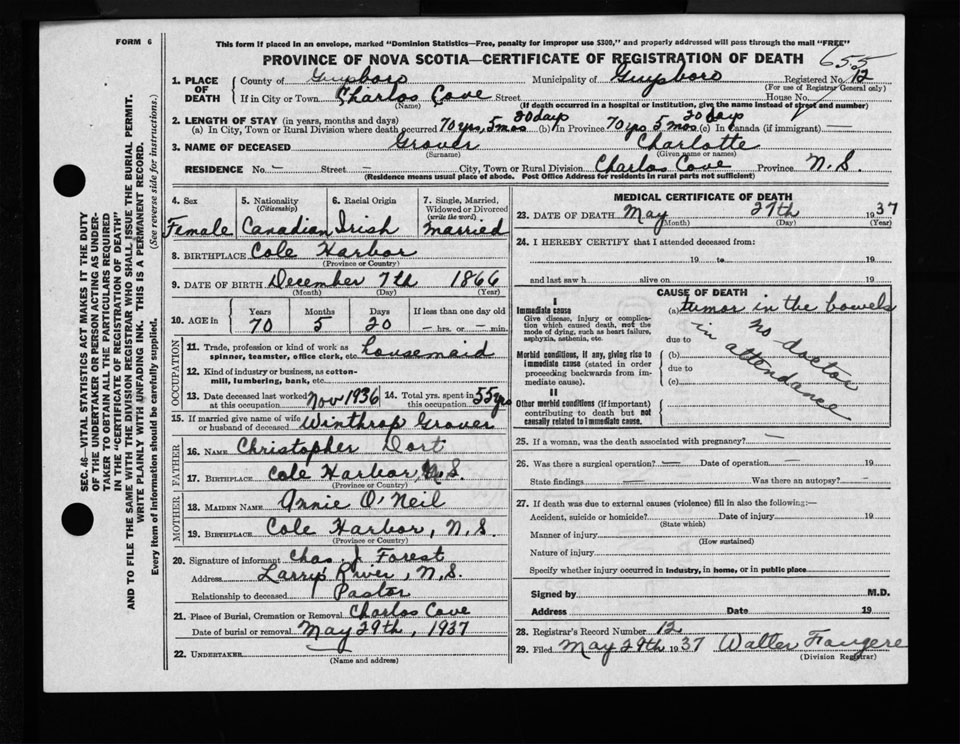 FORM 6
This form if placed in an envelope, marked "Dominion Statistics—Free, penalty for improper use $300," and properly addressed will pass through the mail "FREE"
PROVINCE OF NOVA SCOTIA—CERTIFICATE OF REGISTRATION OF DEATH
655
1. PLACE OF DEATH
County of Guysboro Municipality of Guysboro Registered No. 12
(For use of Registrar General only)
If in City or Town Charlos Cove Street House No.
(Name) (If death occurred in a hospital or institution, give the name instead of street and number)
2. LENGTH OF STAY (in years, months and days)
(a) In City, Town or Rural Division where death occurred 70 yrs, 5 mos 20 days (b) In Province 70 yrs 5 mos 20 days (c) In Canada (if immigrant) —
3. NAME OF DECEASED Grover Charlotte
(Surname) (Given name or names)
RESIDENCE No. — Street — City, Town or Rural Division Charlos Cove Province N.S.
(Residence means usual place of abode. Post Office Address for residents in rural parts not sufficient)
4. Sex Female
5. Nationality (Citizenship) Canadian
6. Racial Origin Irish
7. Single, Married, Widowed or Divorced (write the word) married
8. BIRTHPLACE Cole Harbor
(Province or Country)
9. DATE OF BIRTH December 7th 1866
(Month) (Day) (Year)
10. AGE in Years Months Days If less than one day old
70 5 20 — hrs. or — min.
OCCUPATION
11. Trade, profession or kind of work as spinner, teamster, office clerk, etc. housemaid
12. Kind of industry or business, as cotton-mill, lumbering, bank, etc.
13. Date deceased last worked at this occupation Nov 1936
14. Total yrs. spent in this occupation 55 yrs
15. If married give name of wife or husband of deceased Winthrop Grover
FATHER
16. NAME Christopher Dort
17. BIRTHPLACE Cole Harbor, N.S.
(Province or Country)
MOTHER
18. MAIDEN NAME Annie O'Neil
19. BIRTHPLACE Cole Harbor, N.S.
(Province or Country)
20. Signature of informant Chas J. Forest
Address Larrys River, N.S.
Relationship to deceased Pastor
21. Place of Burial, Cremation or Removal Charlos Cove
Date of burial or removal May 29th, 1937
22. UNDERTAKER
(Name and address)
MEDICAL CERTIFICATE OF DEATH
23. DATE OF DEATH May 27th 1937
(Month) (Day) (Year)
24. I HEREBY CERTIFY that I attended deceased from:
19 to 19
and last saw h alive on 19
CAUSE OF DEATH
I
Immediate cause
Give disease, injury or complication which caused death, not the mode of dying, such as heart failure, asphyxia, asthenia, etc.
(a) tumor in the bowels
due to
no doctor
in attendance
Morbid conditions, if any, giving rise to immediate cause (stated in order proceeding backwards from immediate cause).
(b)
due to
(c)
II
Other morbid conditions (if important) contributing to death but not causally related to immediate cause.
25. If a woman, was the death associated with pregnancy? —
26. Was there a surgical operation? — Date of operation — 19
State findings — Was there an autopsy? -
27. If death was due to external causes (violence) fill in also the following:—
Accident, suicide or homicide? Date of injury 19
(State which)
Manner of injury
(How sustained)
Nature of injury
Specify whether injury occurred in industry, in home, or in public place
Signed by M.D.
Address Date 19
28. Registrar's Record Number 12
29. Filed May 29th 1937 Walter
(Division Registrar)
SEC. 46—VITAL STATISTICS ACT MAKES IT THE DUTY
OF THE UNDERTAKER OR PERSON ACTING AS UNDER-
TAKER TO OBTAIN ALL THE PARTICULARS REQUIRED
IN THE "CERTIFICATE OF REGISTRATION OF DEATH"
AND TO FILE THE SAME WITH THE DIVISION REGISTRAR WHO SHALL ISSUE THE BURIAL PERMIT.
WRITE PLAINLY WITH UNFADING INK. THIS IS A PERMANENT RECORD.
Every item of information should be carefully supplied. (See reverse side for instructions.)